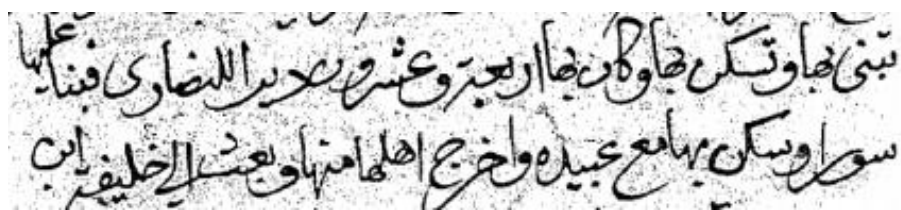 تبنى بها وتسكن بها وكان بها اربعة وعشرون ديرا للنصارى فبنا عليها
سورا وسكن بها مع عبيده واخرج اهلها منها وبعث الى خليفة ابن